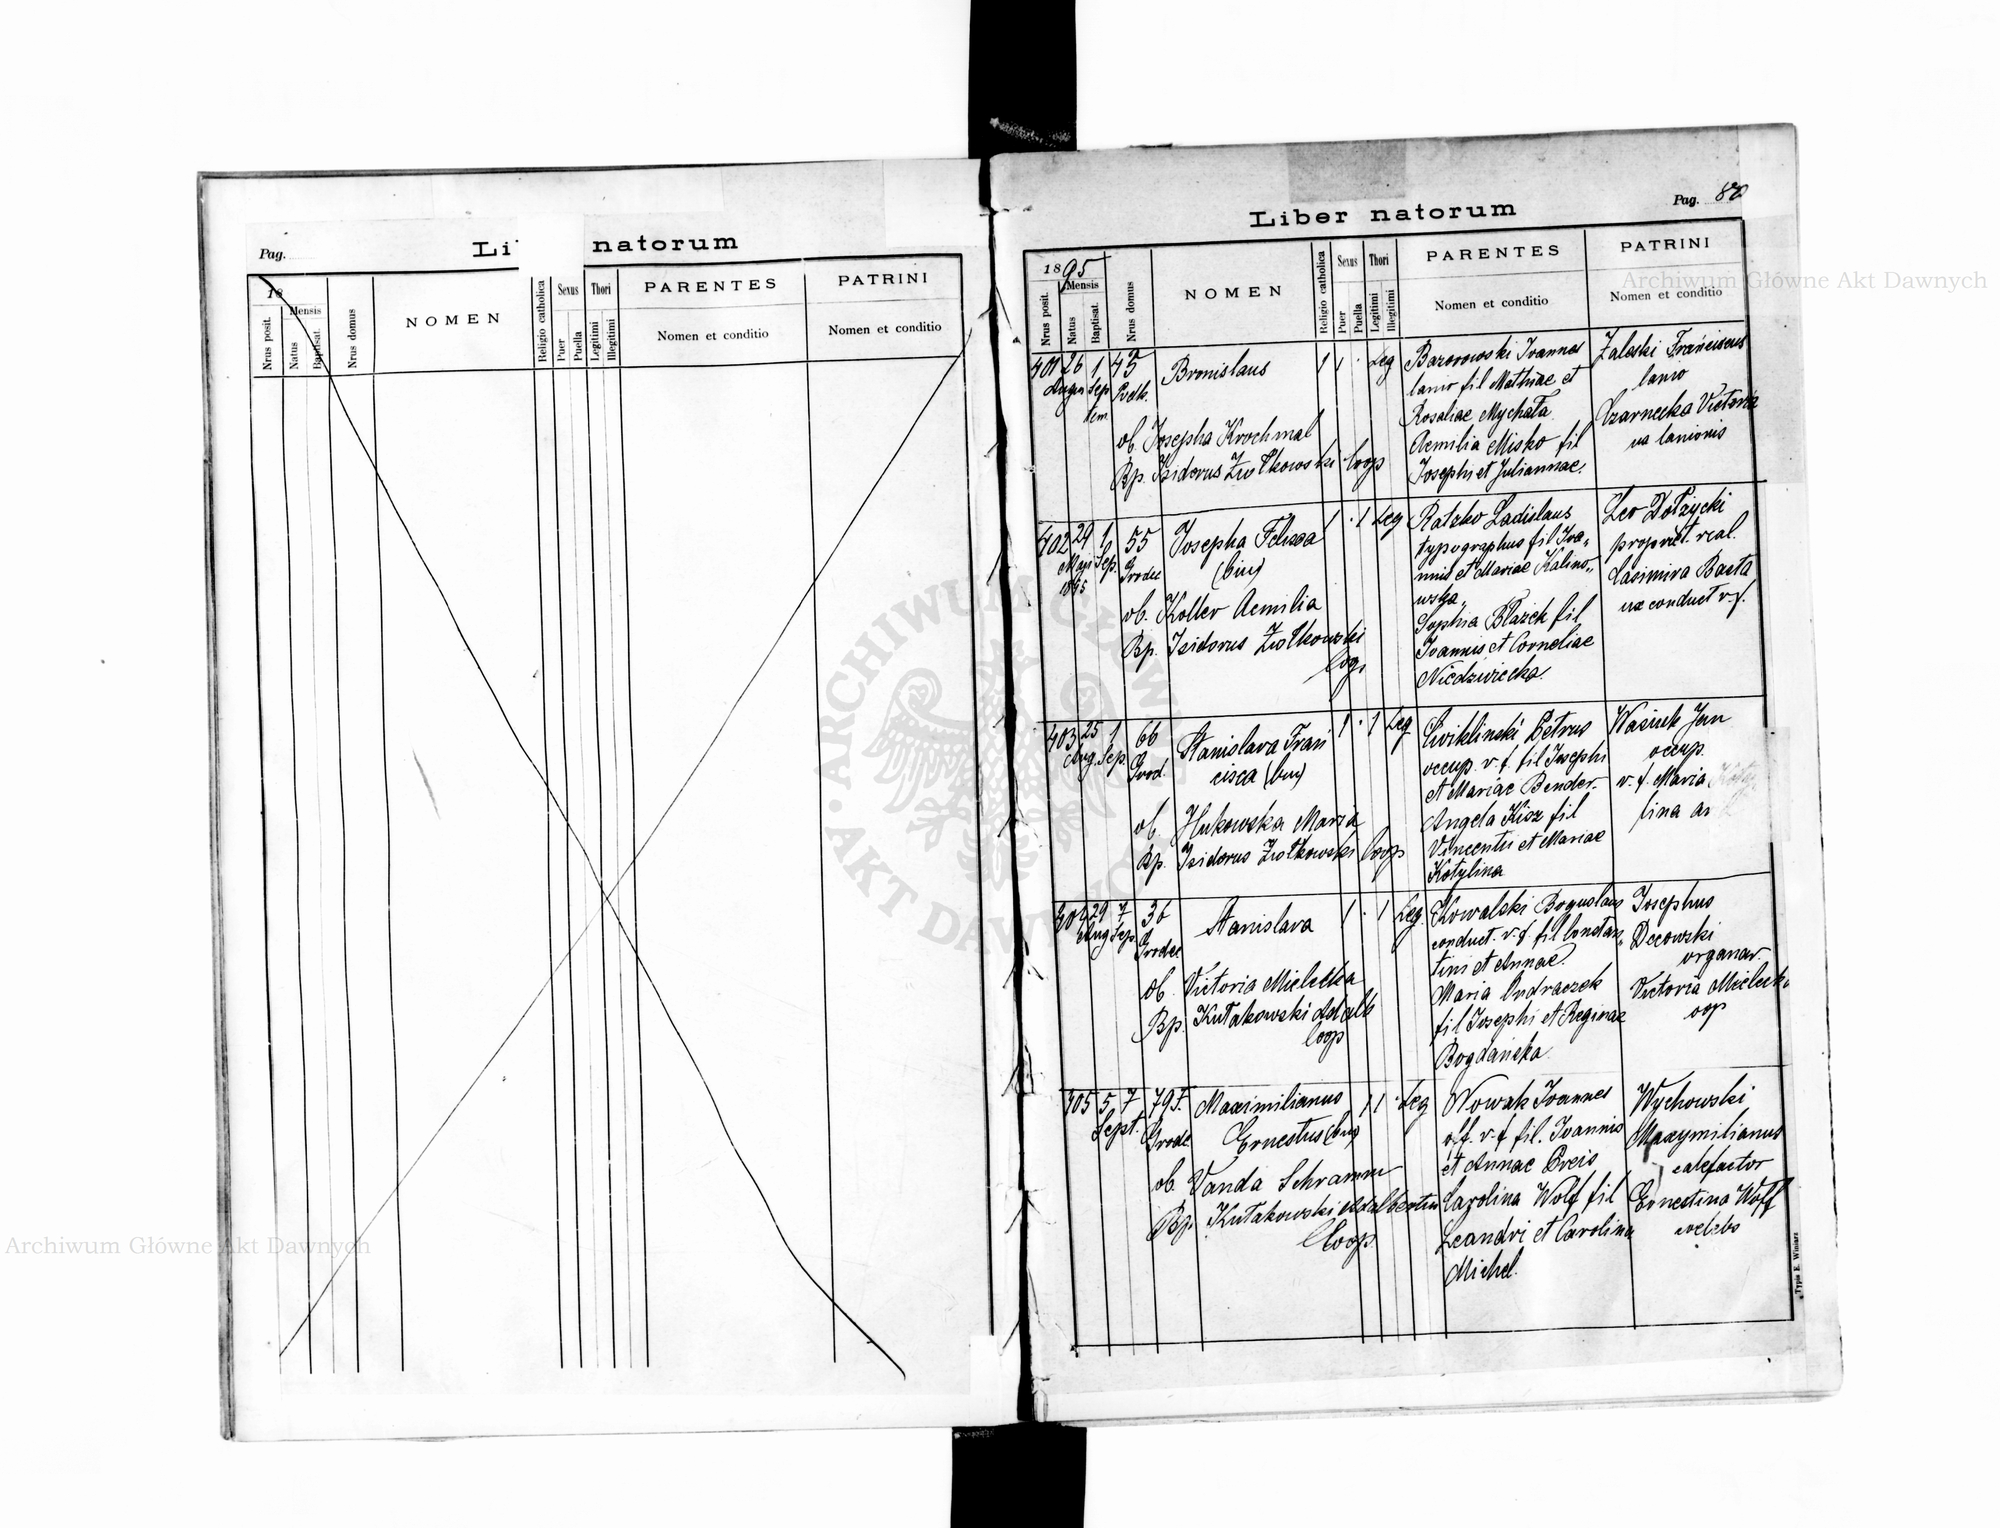 Pag.
Li natorum
18
Mensis
Nrus posit.
Natus
Baptisat.
Nrus domus
NOMEN
Religio catholica
Sexus
Puer
Puella
Thori
Legitimi
Illegitimi
PARENTES
Nomen et conditio
PATRINI
Nomen et conditio
Pag. 80
Liber natorum
1895
Mensis
Nrus posit.
Natus
Baptisat.
Nrus domus
NOMEN
Religio catholica
Sexus
Puer
Puella
Thori
Legitimi
Illegitimi
PARENTES
Nomen et conditio
PATRINI
Nomen et conditio
401 26 1 45 Bronislaus 1 1 · Leg
Sep
tem
ob. Josepha Krochmal
Bp. Isidorus Ziołkowski Coop
Bazorowski Ioannes
lanio fil Mathiae et
Rosaliae Mychała
Aemilia Misko fil
Josephi et Juliannae
Zaleski Franciscus
lanio
Czarnecka Victoria
ux lanionis
402 29 1 55 Josepha Felixa 1 · 1 Leg
Maji Sep. Grodec (bin)
1895
ob. Koller Aemilia
Bp. Isidorus Ziołkowski
Coop
Ratzko Ladislaus
typographus fil Ioa-
nnis et Mariae Kalino-
wska
Sophia Błażek fil
Ioannis et Corneliae
Niedzwiecka
Leo Dołżycki
propriet. real.
Casimira Basta
ux conduct v. f.
403 25 1 66 Stanislava Fran 1 · 1 Leg
Aug. Sep. Grod. cisca (bin)
ob. Hukowska Maria
Bp. Isidorus Ziołkowski Coop
Cwikliński Petrus
occup. v. f. fil Josephi
et Mariae Bender
Angela Kisz fil
Vincentii et Mariae
Kotylina
Wasiuk Jan
occup.
v. f. Maria
404 29 7 36 Stanislava 1 · 1 Leg
Aug Sep. Grodec
ob. Victoria Mielecka
Bp. Kułakowski Adalb
Coop
Kowalski Boguslaus
conduct. v. f. fil Constan-
tini et Annae
Maria Ondraczek
fil Josephi et Reginae
Bogdańska
Josephus
Decowski
organar.
Victoria Mielecka
405 5 7 79 Maximilianus 1 1 · Leg
Sept. Grodec Ernestus (bin)
ob. Vanda Schramm
Bp. Kułakowski Adalbertus
Coop.
Nowak Ioannes
off. v. f. fil. Ioannis
et Annae Preis
Carolina Wolf fil
Leandri et Carolina
Michel.
Wychowski
Maxymilianus
calefactor
Ernestina Wolf
Typis E. Winiarz
Archiwum Główne Akt Dawnych
Archiwum Główne Akt Dawnych
ARCHIWUM GŁÓWNE AKT DAWNYCH